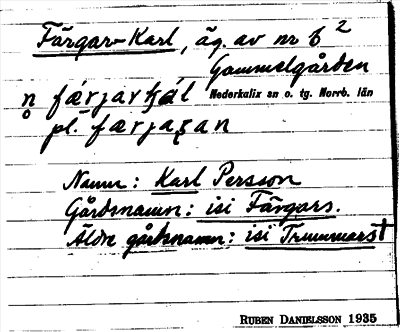 Färgar-Karl, äg. av nr 6²
Gammelgården
Nederkalix sn o. tg. Norrb. län
pl. færjaran
Namn: Karl Persson
Gårdsnamn: isi Färgars.
Äldre gårdsnamn: isi Trummars†
RUBEN DANIELSSON 1935